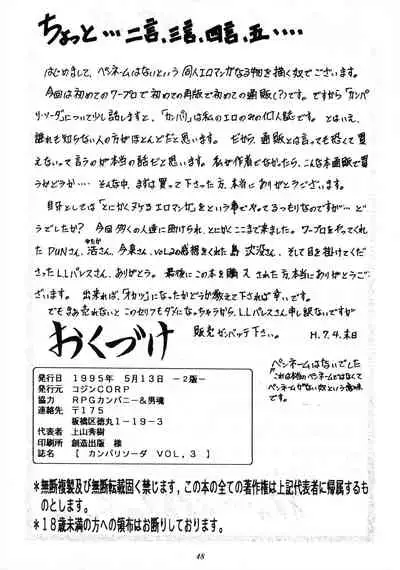 ちょっと…二言、三言、四言、五‥‥
はじめまして、ペンネームはないという 同人エロマンガなる物を描く奴でございます。
今回は初めてのワープロで初めての再版で初めての通販(?)です。ですから「カンパリ・ソーダ」について少し話しますと、「カンパリ」は私のエロのみの個人誌です。とはいえ、
誰れも知らない人の方がほとんどだと思います。だから、通販とは言っても恐くて買
えないって言うのが本当の話だと思います。私が作者でなかったら、こんな本通販で買
うかどうか‥‥ そんな中、まずは買って下さった方、本当に ありがとうございます。
自分としては「とにかくヌケるエロマンガ」をという事でやってるつもりなのですが…ど
うでしたか? 今回多くの人達に助けられ、とにかくここまで来ました。ワープロをやってくれ
たDUNさん、浩さん、今泉さん、vol.2の感想をくれた島 次没さん、そして目を掛けてくだ
さったLLパレスさん、ありがとう。最後にこの本を購入された方、本当にありがとうござ
います。出来れば、「オカツ」になったかどうか教えて下されば幸いです。
でもまあ売れないとこのセリフもダメになっちゃうから、LLパレスさん申し訳ないですが
販売ガンバッテ下さい。 H.7.4.末日
おくづけ
ペンネームはないでした
これは本当のペンネームではなくて
ペンネームがない奴という意味
です。
発行日 1995年 5月13日 -2版-
発行元 コジンCORP
協力 RPGカンパニー&男魂
連絡先 〒175
板橋区徳丸1-19-3
代表者 上山秀樹
印刷所 創造出版 様
誌名 【 カンパリソーダ VOL.3 】
*無断複製及び無断転載固く禁じます,この本の全ての著作権は上記代表者に帰属するも
のとします。
*18歳未満の方への領布はお断りしております。
48